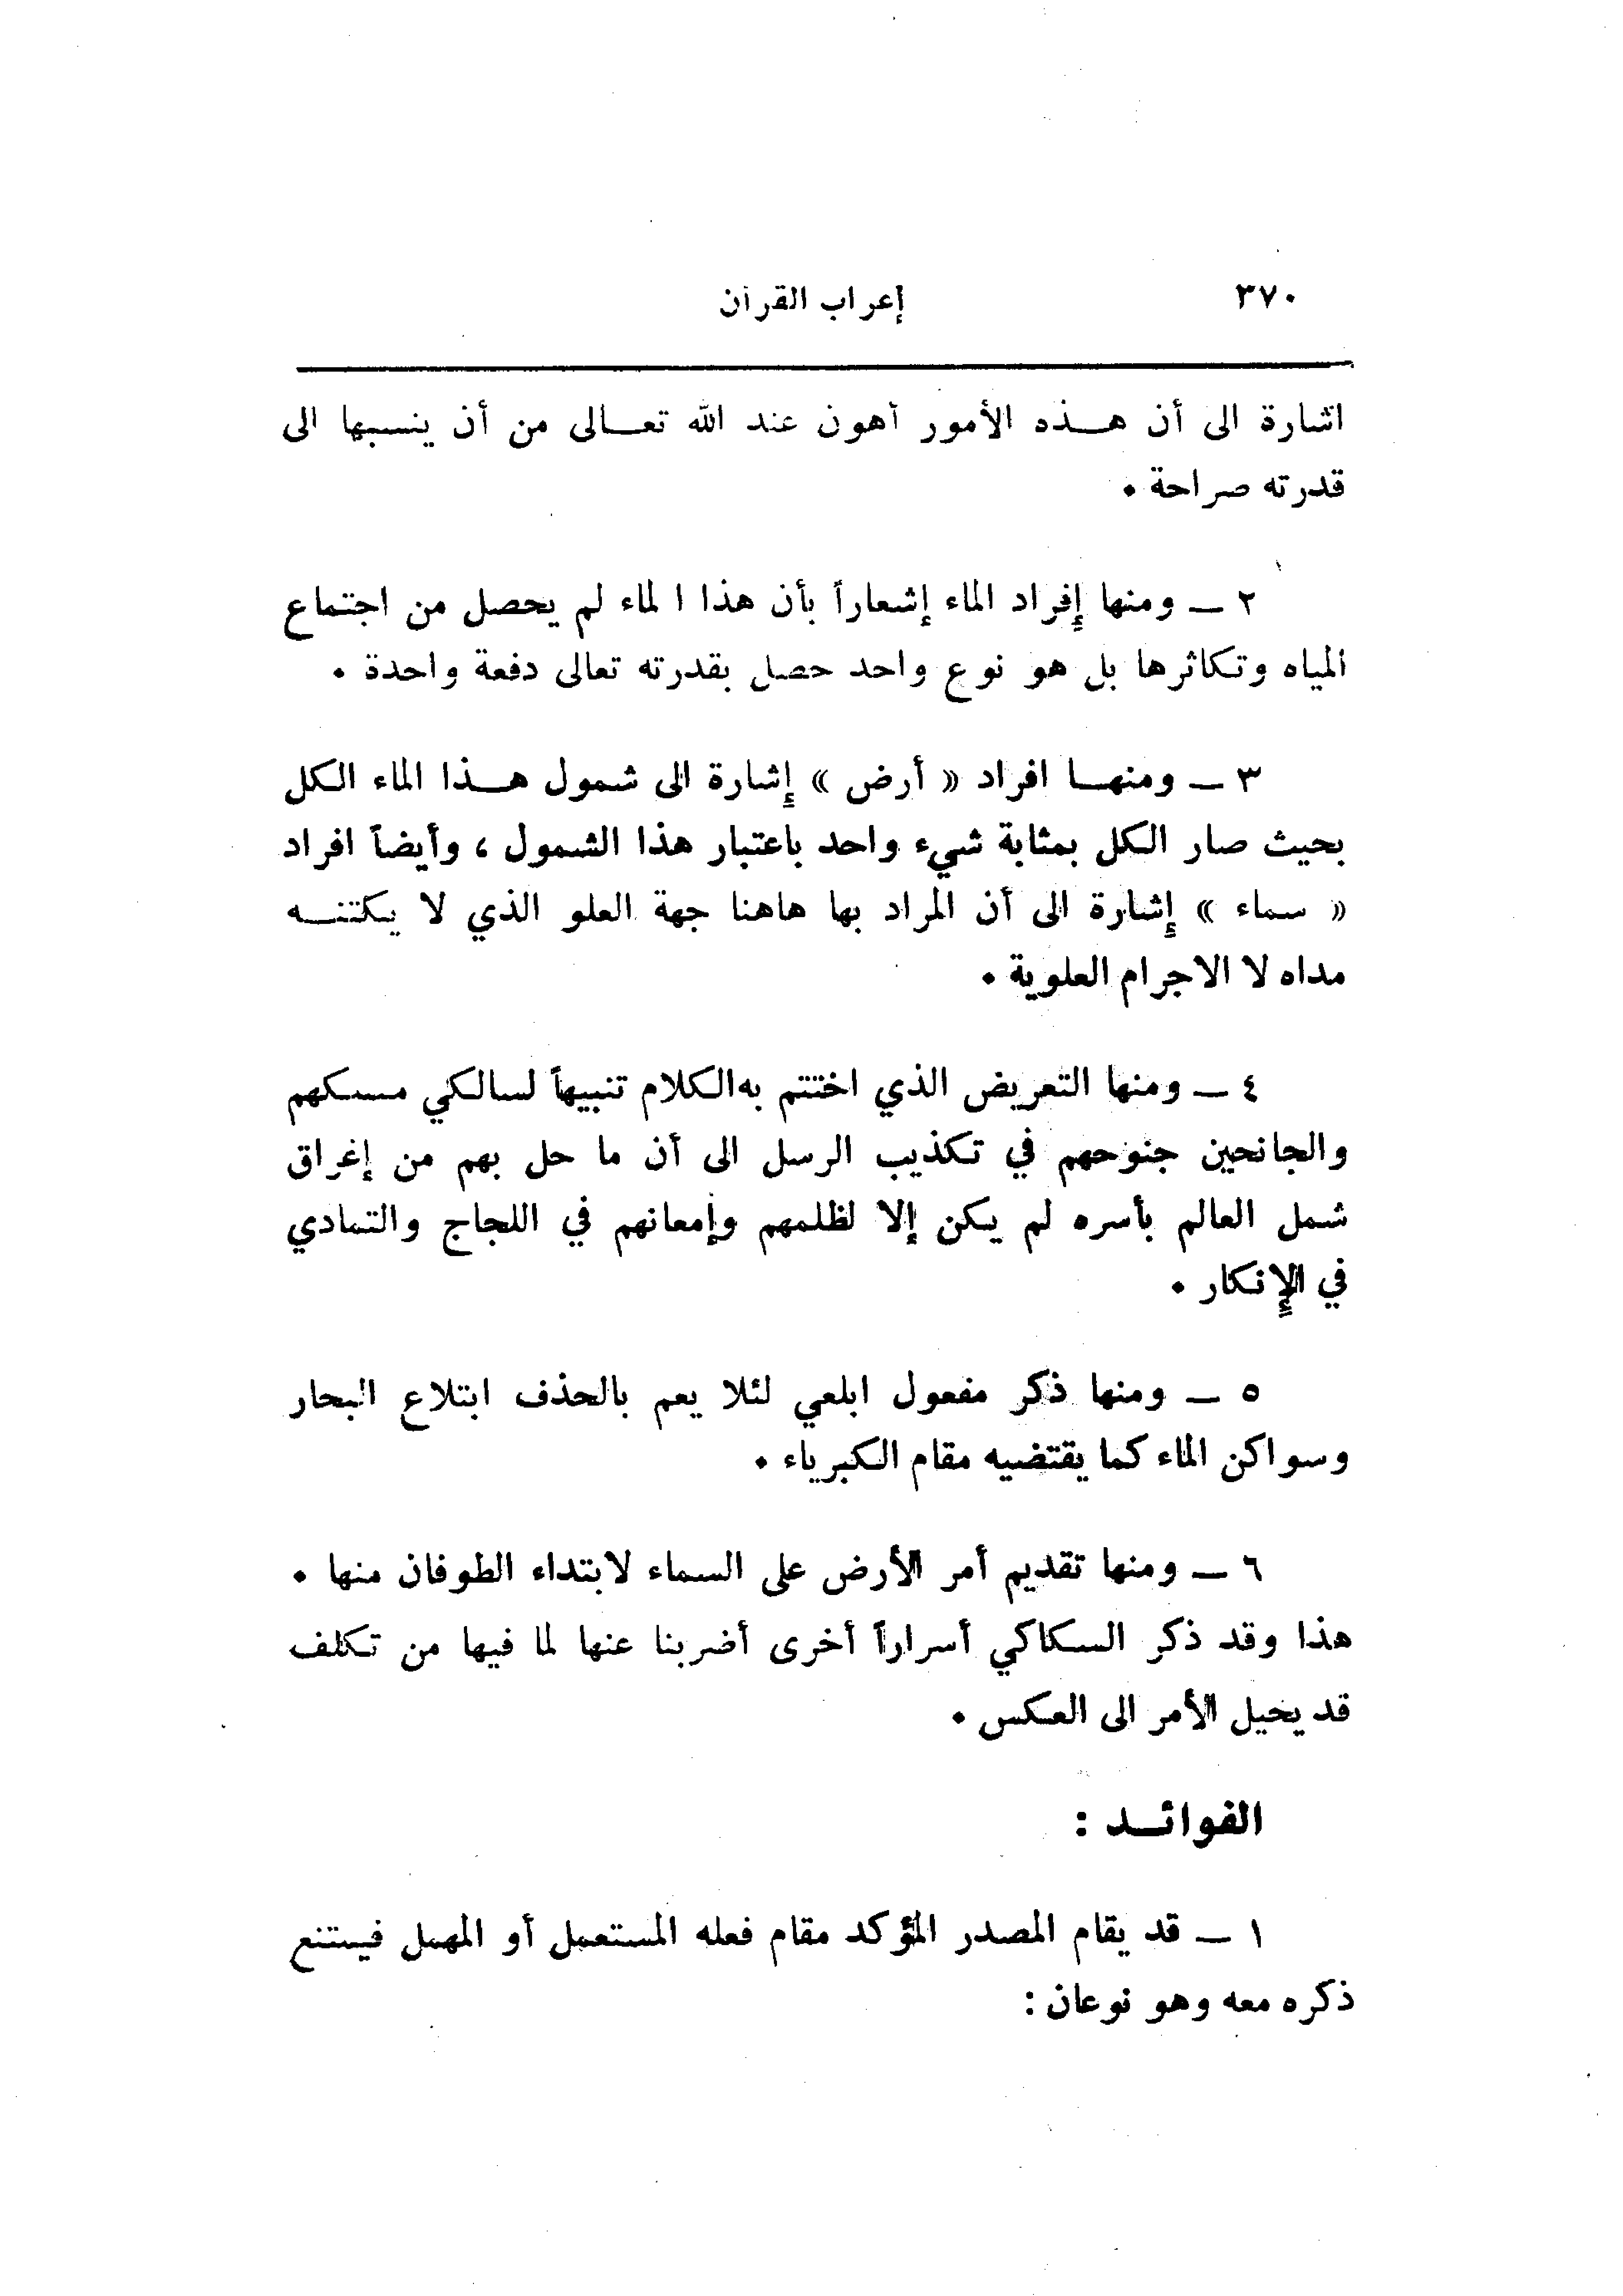 ٣٧٠ إعراب القرآن
اشارة الى أن هذه الأمور أهون عند الله تعالى من أن ينسبها الى
قدرته صراحة .
٢ ــ ومنها إفراد الماء إشعاراً بأن هذا الماء لم يحصل من اجتماع
المياه وتكاثرها بل هو نوع واحد حصل بقدرته تعالى دفعة واحدة .
٣ ــ ومنها افراد « أرض » إشارة الى شمول هذا الماء الكل
بحيث صار الكل بمثابة شيء واحد باعتبار هذا الشمول ، وأيضاً افراد
« سماء » إشارة الى أن المراد بها هاهنا جهة العلو الذي لا يكتنه
مداه لا الاجرام العلوية .
٤ ــ ومنها التعريض الذي اختتم به الكلام تنبيهاً لسالكي مسكهم
والجانحين جنوحهم في تكذيب الرسل الى أن ما حل بهم من إغراق
شمل العالم بأسره لم يكن إلا لظلمهم وإمعانهم في اللجاج والتمادي
في الإنكار .
٥ ــ ومنها ذكر مفعول ابلعي لئلا يعم بالحذف ابتلاع البحار
وسواكن الماء كما يقتضيه مقام الكبرياء .
٦ ــ ومنها تقديم أمر الأرض على السماء لابتداء الطوفان منها .
هذا وقد ذكر السكاكي أسراراً أخرى أضربنا عنها لما فيها من تكلف
قد يحيل الأمر الى العكس .
الفوائد :
١ ــ قد يقام المصدر المؤكد مقام فعله المستعمل أو المهمل فيمتنع
ذكره معه وهو نوعان :